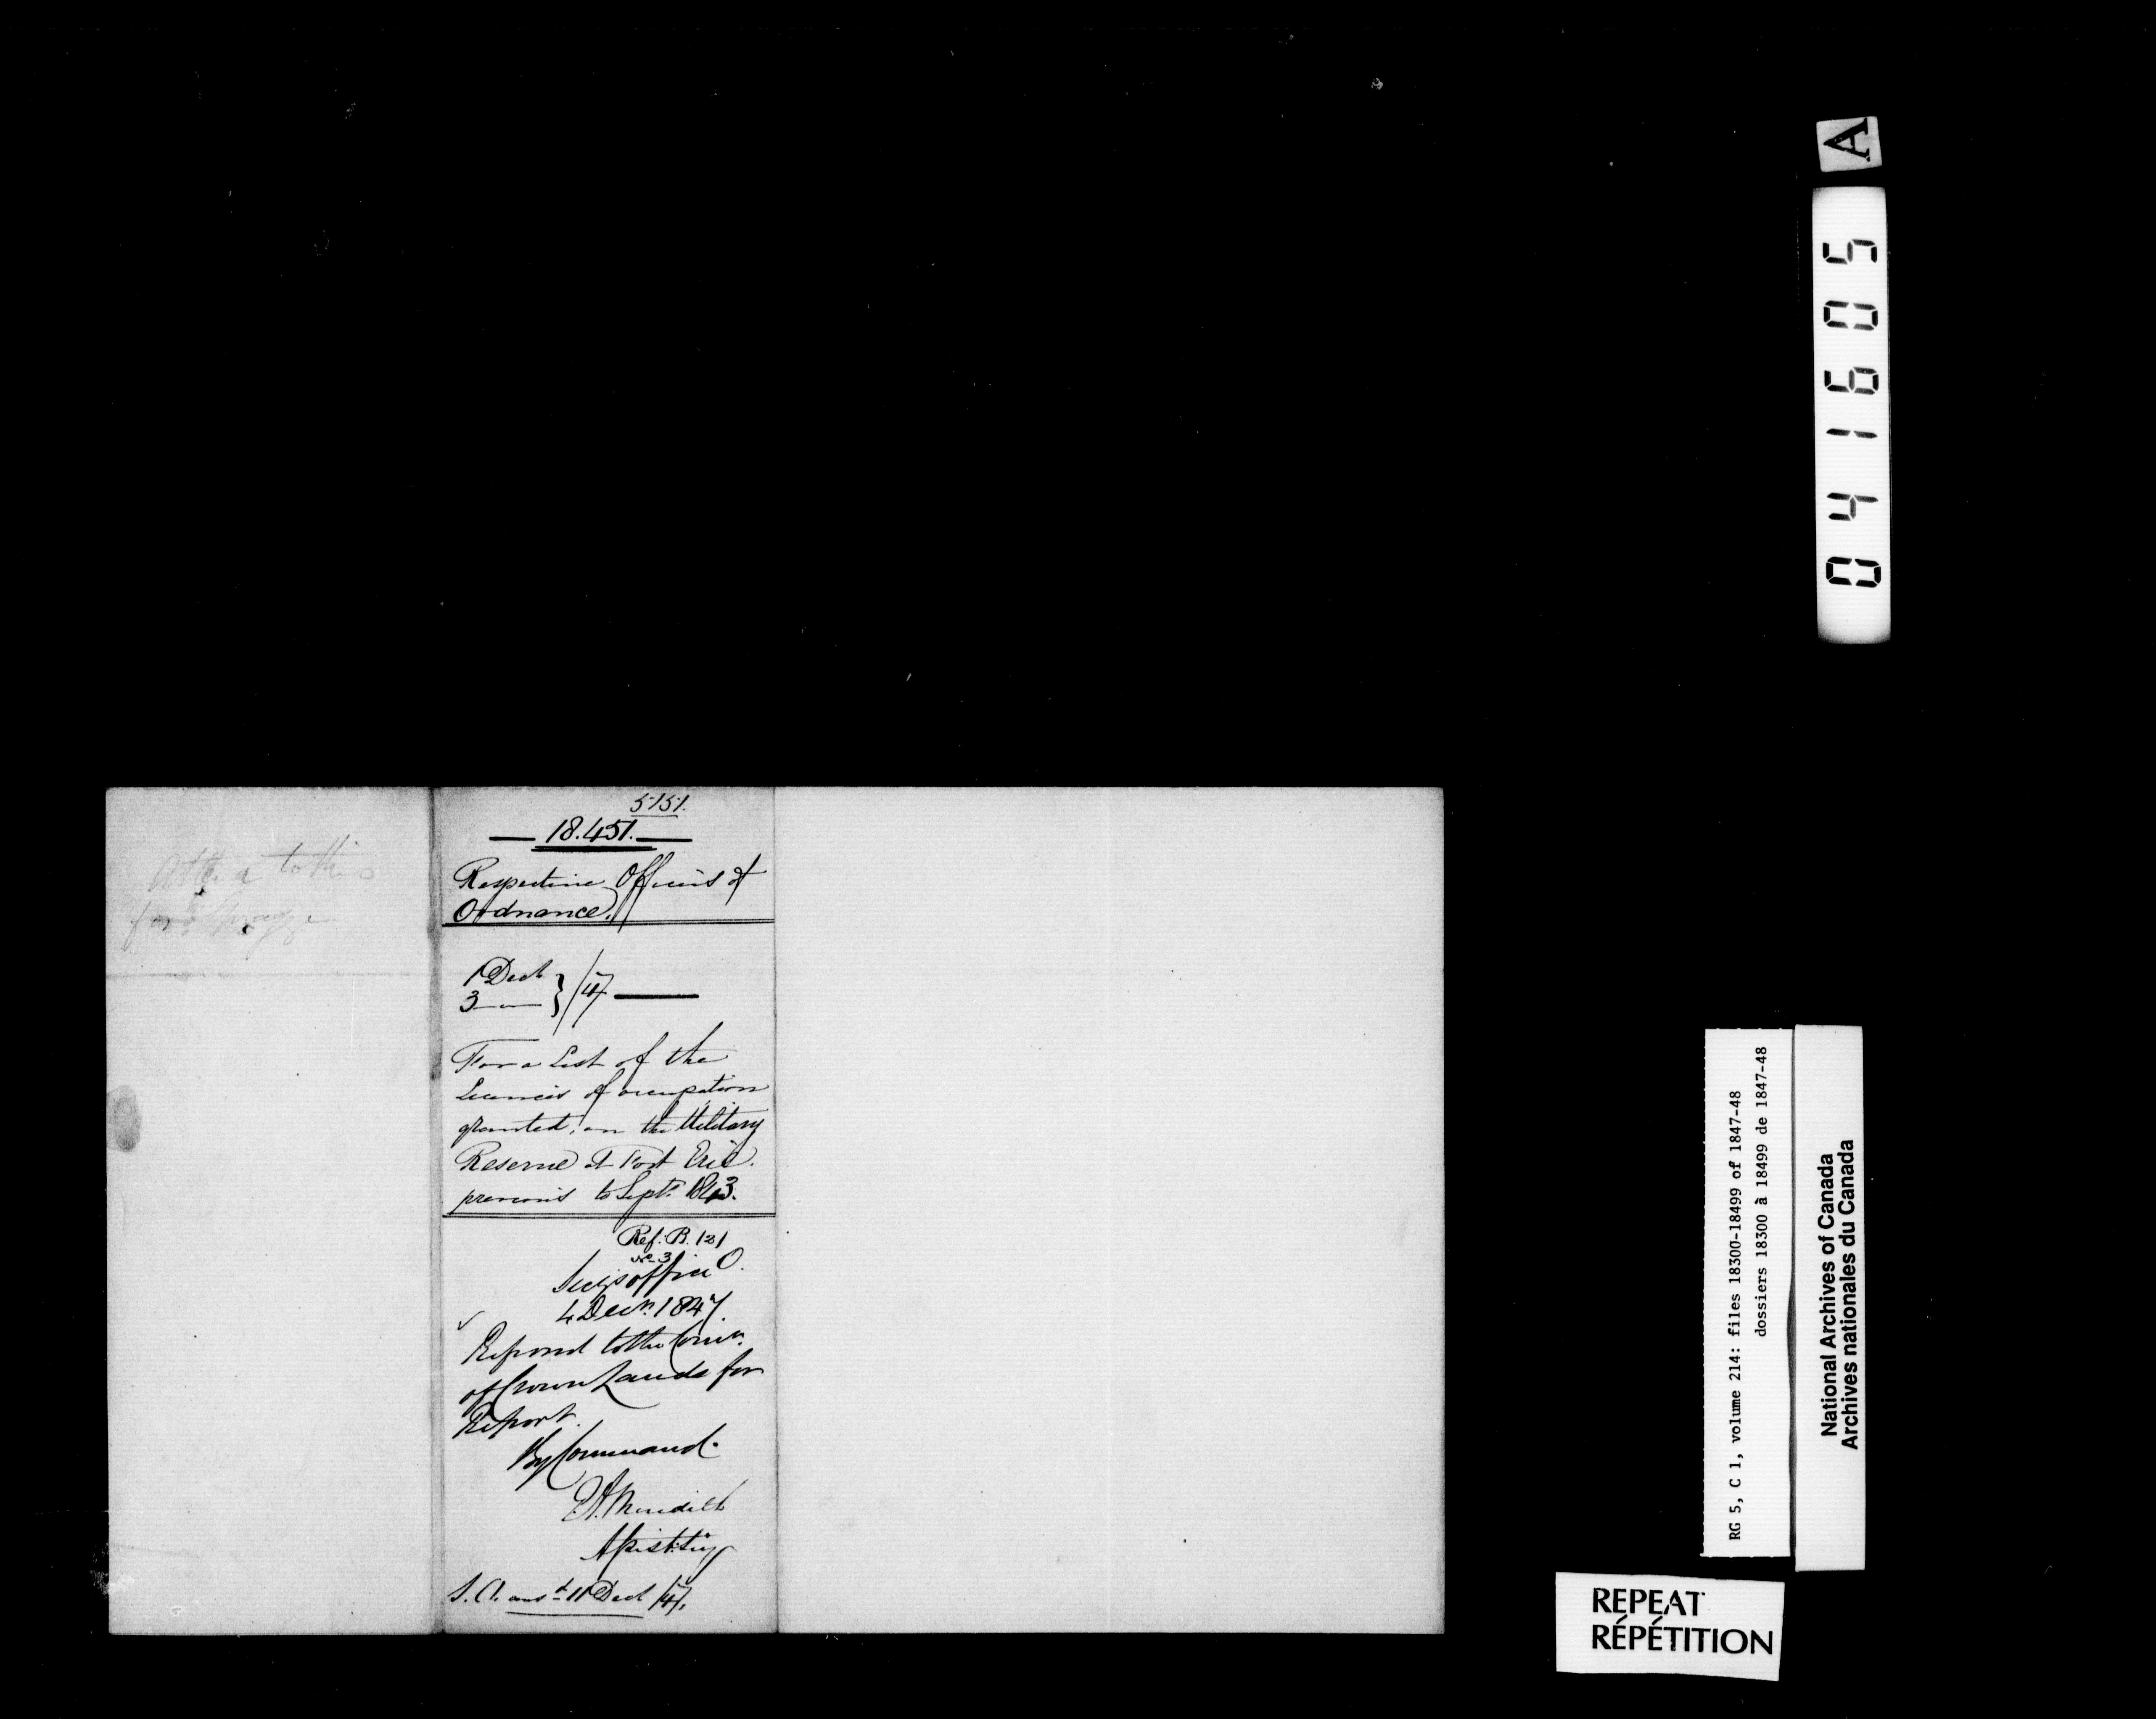 5151.
18.451.
Respective Officers of
Ordnance.
1 Decr
3 — } /47
For a List of the
Licences of occupation
granted, on the Military
Reserve at Fort Erie.
previous to Septr 1843.
Ref. B. 121
No 3
Secys office
4 Decr. 1847.
to the Comr.
of Crown Lands for
Report.
By Command.
E.A. Meredith
Assist. Secy
S.O. ansd 11 Decr /47.
to this
A
041605
RG 5, C 1, volume 214: files 18300-18499 of 1847-48
dossiers 18300 à 18499 de 1847-48
National Archives of Canada
Archives nationales du Canada
REPEAT
RÉPÉTITION